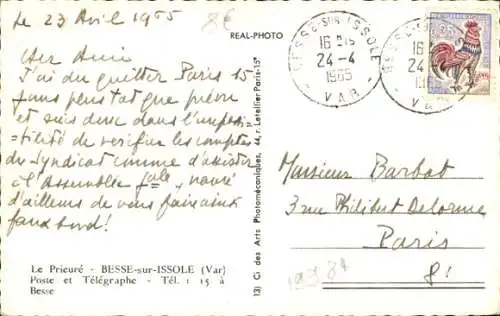 le 23 Avril 1965
86
REAL-PHOTO
Cher Ami
J'ai dû quitter Paris 15
jours plus tôt que prévu
et suis donc dans l'impossi-
=bilité de vérifier les comptes
du Syndicat comme d'assister
à l'Assemblée gale, navré
d'ailleurs de vous faire ainsi
faux bond!
BESSE-SUR-ISSOLE
16 H 15
24-4
1965
VAR
BESSE-SUR-ISSOLE
16
24
VAR
13) Cl des Arts Photomécaniques, 44, r. Letellier Paris-15e
Monsieur Barbot
3 rue Philibert Delorme
Paris
19384
Le Prieuré - BESSE-sur-ISSOLE (Var)
Poste et Télégraphe - Tél. : 15 à
Besse